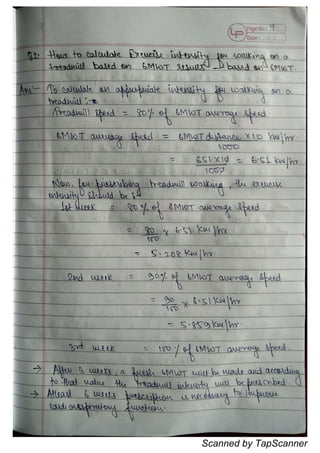 Page No. 4
Date
Q2. How to calculate Exercise intensity for walking on a
treadmill based on 6MWT results based on 6MWT.
Ans - To calculate an appropriate intensity for walking on a
treadmill :-
Treadmill speed = 80% of 6MWT average speed.
6MWT average speed = 6MWT distance x 10 km/hr.
1000
= 651 x 10 = 6.51 km/hr
1000
Now, for prescribing treadmill walking, the exercise
intensity should be :-
1st week = 80% of 6MWT average speed
= 80 x 6.51 km/hr
100
= 5.208 km/hr
2nd week = 90% of 6MWT average speed
= 90 x 6.51 km/hr
100
= 5.859 km/hr.
3rd week = 100% of 6MWT average speed.
→ After 3 weeks, a fresh 6MWT will be made and according
to that value the treadmill intensity will be prescribed.
→ Atleast 6 weeks prescription is necessary to improve
cardiorespiratory function.
Scanned by TapScanner